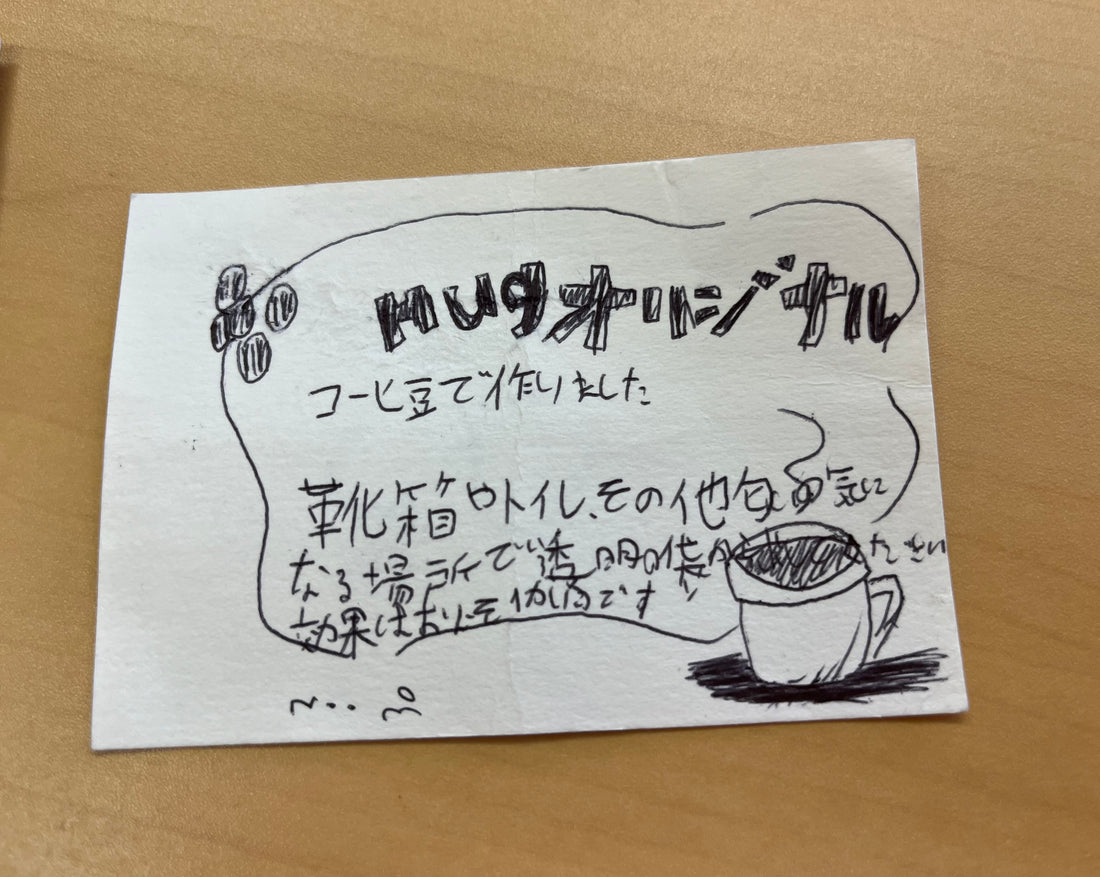 Hugオリジナル
コーヒ豆で作りました
靴箱やトイレ、その他匂いの気に
なる場所で透明の袋 ださい
効果はおよそ1か月です